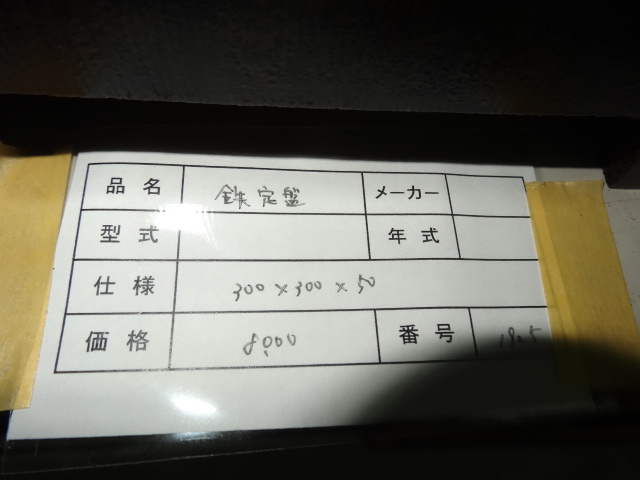 品名 鉄定盤 メーカー
型式 年式
仕様 300×300×50
価格 8,000 番号